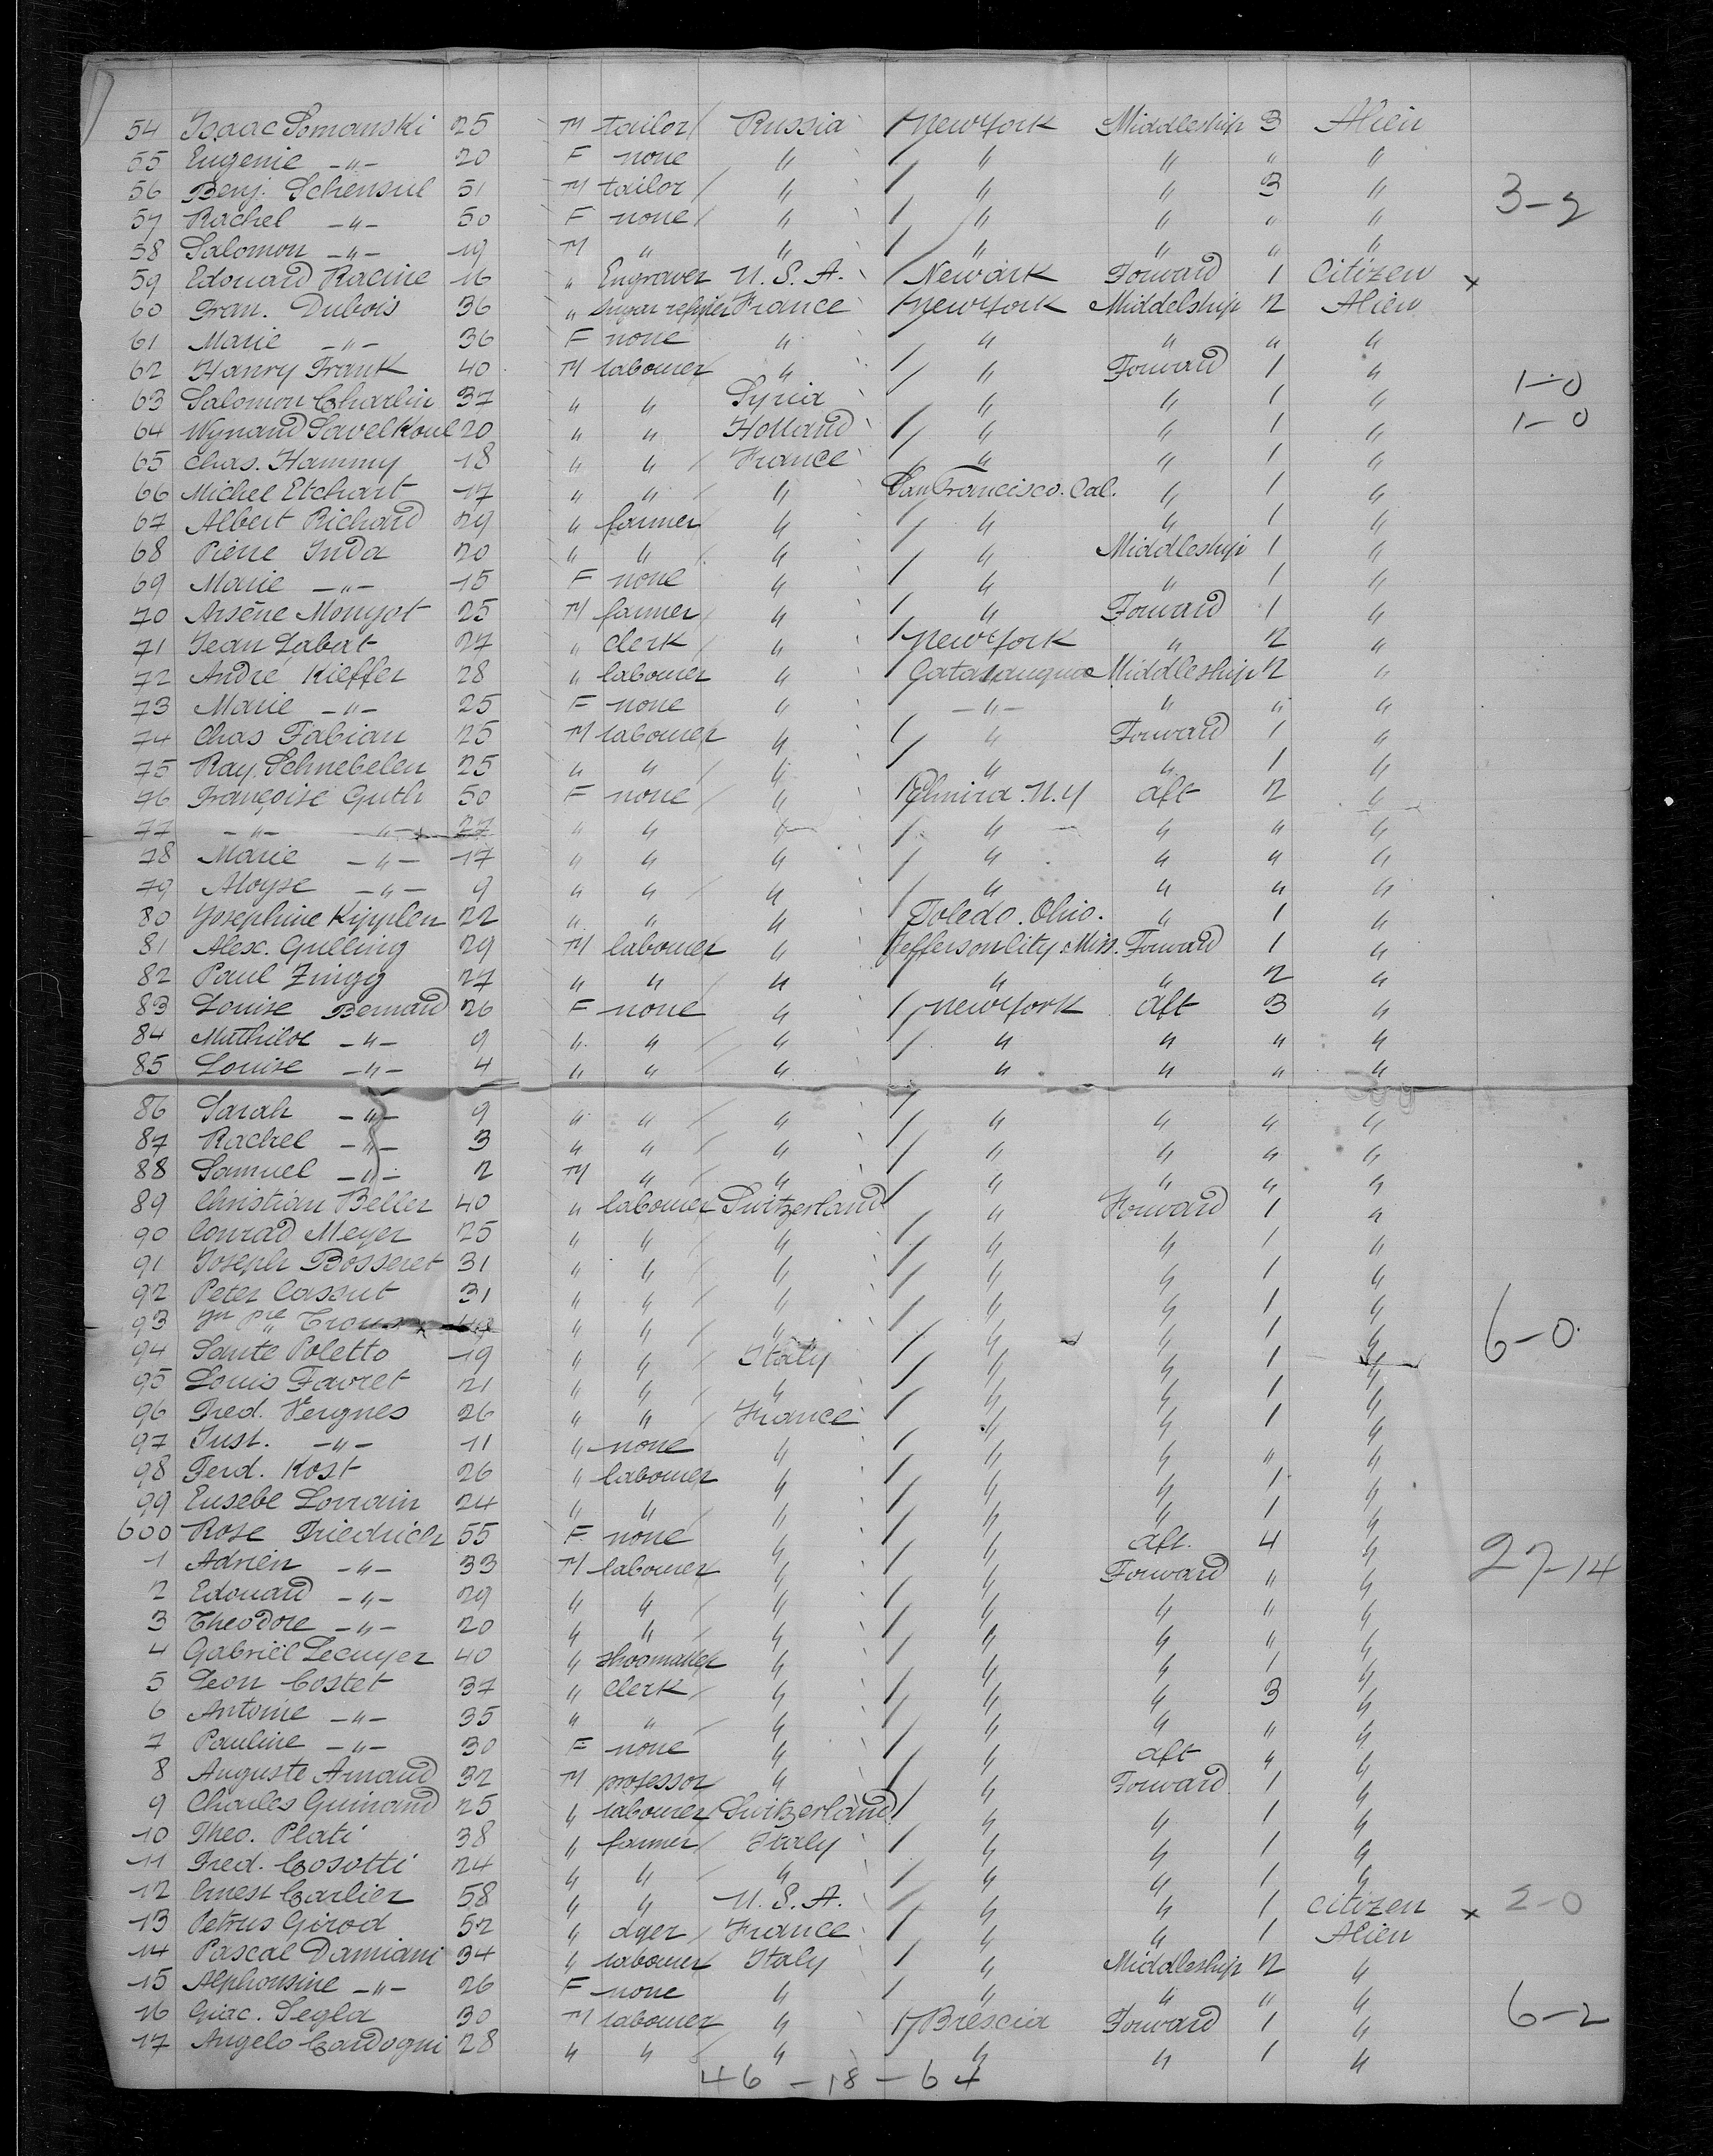 54 Isaac Somanski 25 M tailor Russia New York Middleship 3 Alien
55 Eugenie —"— 20 F none " " " " "
56 Benj. Schensul 51 M tailor " " " 3 "
3-2
57 Rachel —"— 50 F none " " " " "
58 Salomon —"— 19 M " " " " " "
59 Edouard Racine 16 " Engraver U. S. A. Newark Forward 1 Citizen x
60 Fran. Dubois 36 " sugar refiner France New York Middelship 2 Alien
61 Marie —"— 36 F none " " " " "
62 Hanry Frank 40 M labourer " " Forward 1 "
1-0
63 Salomon Charlin 37 " " Syria " " 1 "
1-0
64 Wynand Savelkoul 20 " " Holland " " 1 "
65 Chas. Hammy 18 " " France " " 1 "
66 Michel Etchart 17 " " " San Francisco. Cal. " 1 "
67 Albert Richard 29 " farmer " " " 1 "
68 Pierre Inda 20 " " " " Middleship 1 "
69 Marie —"— 15 F none " " " 1 "
70 Arsène Mongot 25 M farmer " " Forward 1 "
71 Jean Labat 27 " Clerk " New York " 2 "
72 André Kieffer 28 " labourer " Catasauqua Middleship 2 "
73 Marie —"— 25 F none " —"— " " "
74 Chas Fabian 25 M labourer " " Forward 1 "
75 Ray. Schnebelen 25 " " " " " 1 "
76 Françoise Guth 50 F none " Elmira. N. Y aft 2 "
77 —"— —"— x 27 " " " " " " "
78 Marie —"— 17 " " " " " " "
79 Aloyse —"— 9 " " " " " " "
80 Josephine Kipplen 22 " " " Toledo. Ohio. " 1 "
81 Alex. Gulling 29 M labourer " Jefferson City. Miss. Forward 1 "
82 Paul Zingg 27 " " " " " 2 "
83 Louise Bernard 26 F none " New York aft 3 "
84 Mathilde —"— 9 " " " " " " "
85 Louise —"— 4 " " " " " " "
86 Sarah —"— 9 " " " " " " "
87 Rachel —"— 3 " " " " " " "
88 Samuel —"— 2 M " " " " " "
89 Christian Beller 40 " labourer Switzerland " Forward 1 "
90 Conrad Meyer 25 " " " " " 1 "
91 Joseph Bosseret 31 " " " " " 1 "
92 Peter Cassut 31 " " " " " 1 "
93 Jn Pre x " " " " " 1 "
6-0
94 Sante Poletto 19 " " Italy " " 1 "
95 Louis Favret 21 " " " " " 1 "
96 Fred. Vergnes 26 " " France " " 1 "
97 Just. —"— 11 " none " " " " "
98 Ferd. Kost 26 " labourer " " " 1 "
99 Eusebe Lorrain 24 " " " " " 1 "
600 Rose Friedrich 55 F none " " aft. 4 "
27-14
1 Adrien —"— 33 M labourer " " Forward " "
2 Edouard —"— 29 " " " " " " "
3 Theodore —"— 20 " " " " " " "
4 Gabriël Lecuyer 40 " shoemaker " " " 1 "
5 Leon Costet 37 " Clerk " " " 3 "
6 Antoine —"— 35 " " " " " " "
7 Pauline —"— 30 F none " " aft " "
8 Auguste Arnaud 32 M professor " " Forward 1 "
9 Charles Guinand 25 " labourer Switzerland " " 1 "
10 Theo. Plati 38 " farmer Italy " " 1 "
11 Fred. Cosotti 24 " " " " " 1 "
12 Ernest Carlier 58 " " U. S. A. " " 1 Citizen x 2-0
13 Petrus Girod 52 " dyer France " " 1 Alien
14 Pascal Damiani 34 " labourer Italy " Middleship 2 "
15 Alphonsine —"— 26 F none " " " " "
16 Giac. Segla 30 M labourer " Brescia Forward 1 "
6-2
17 Angelo Cardogni 28 " " " " " 1 "
46 - 18 - 64